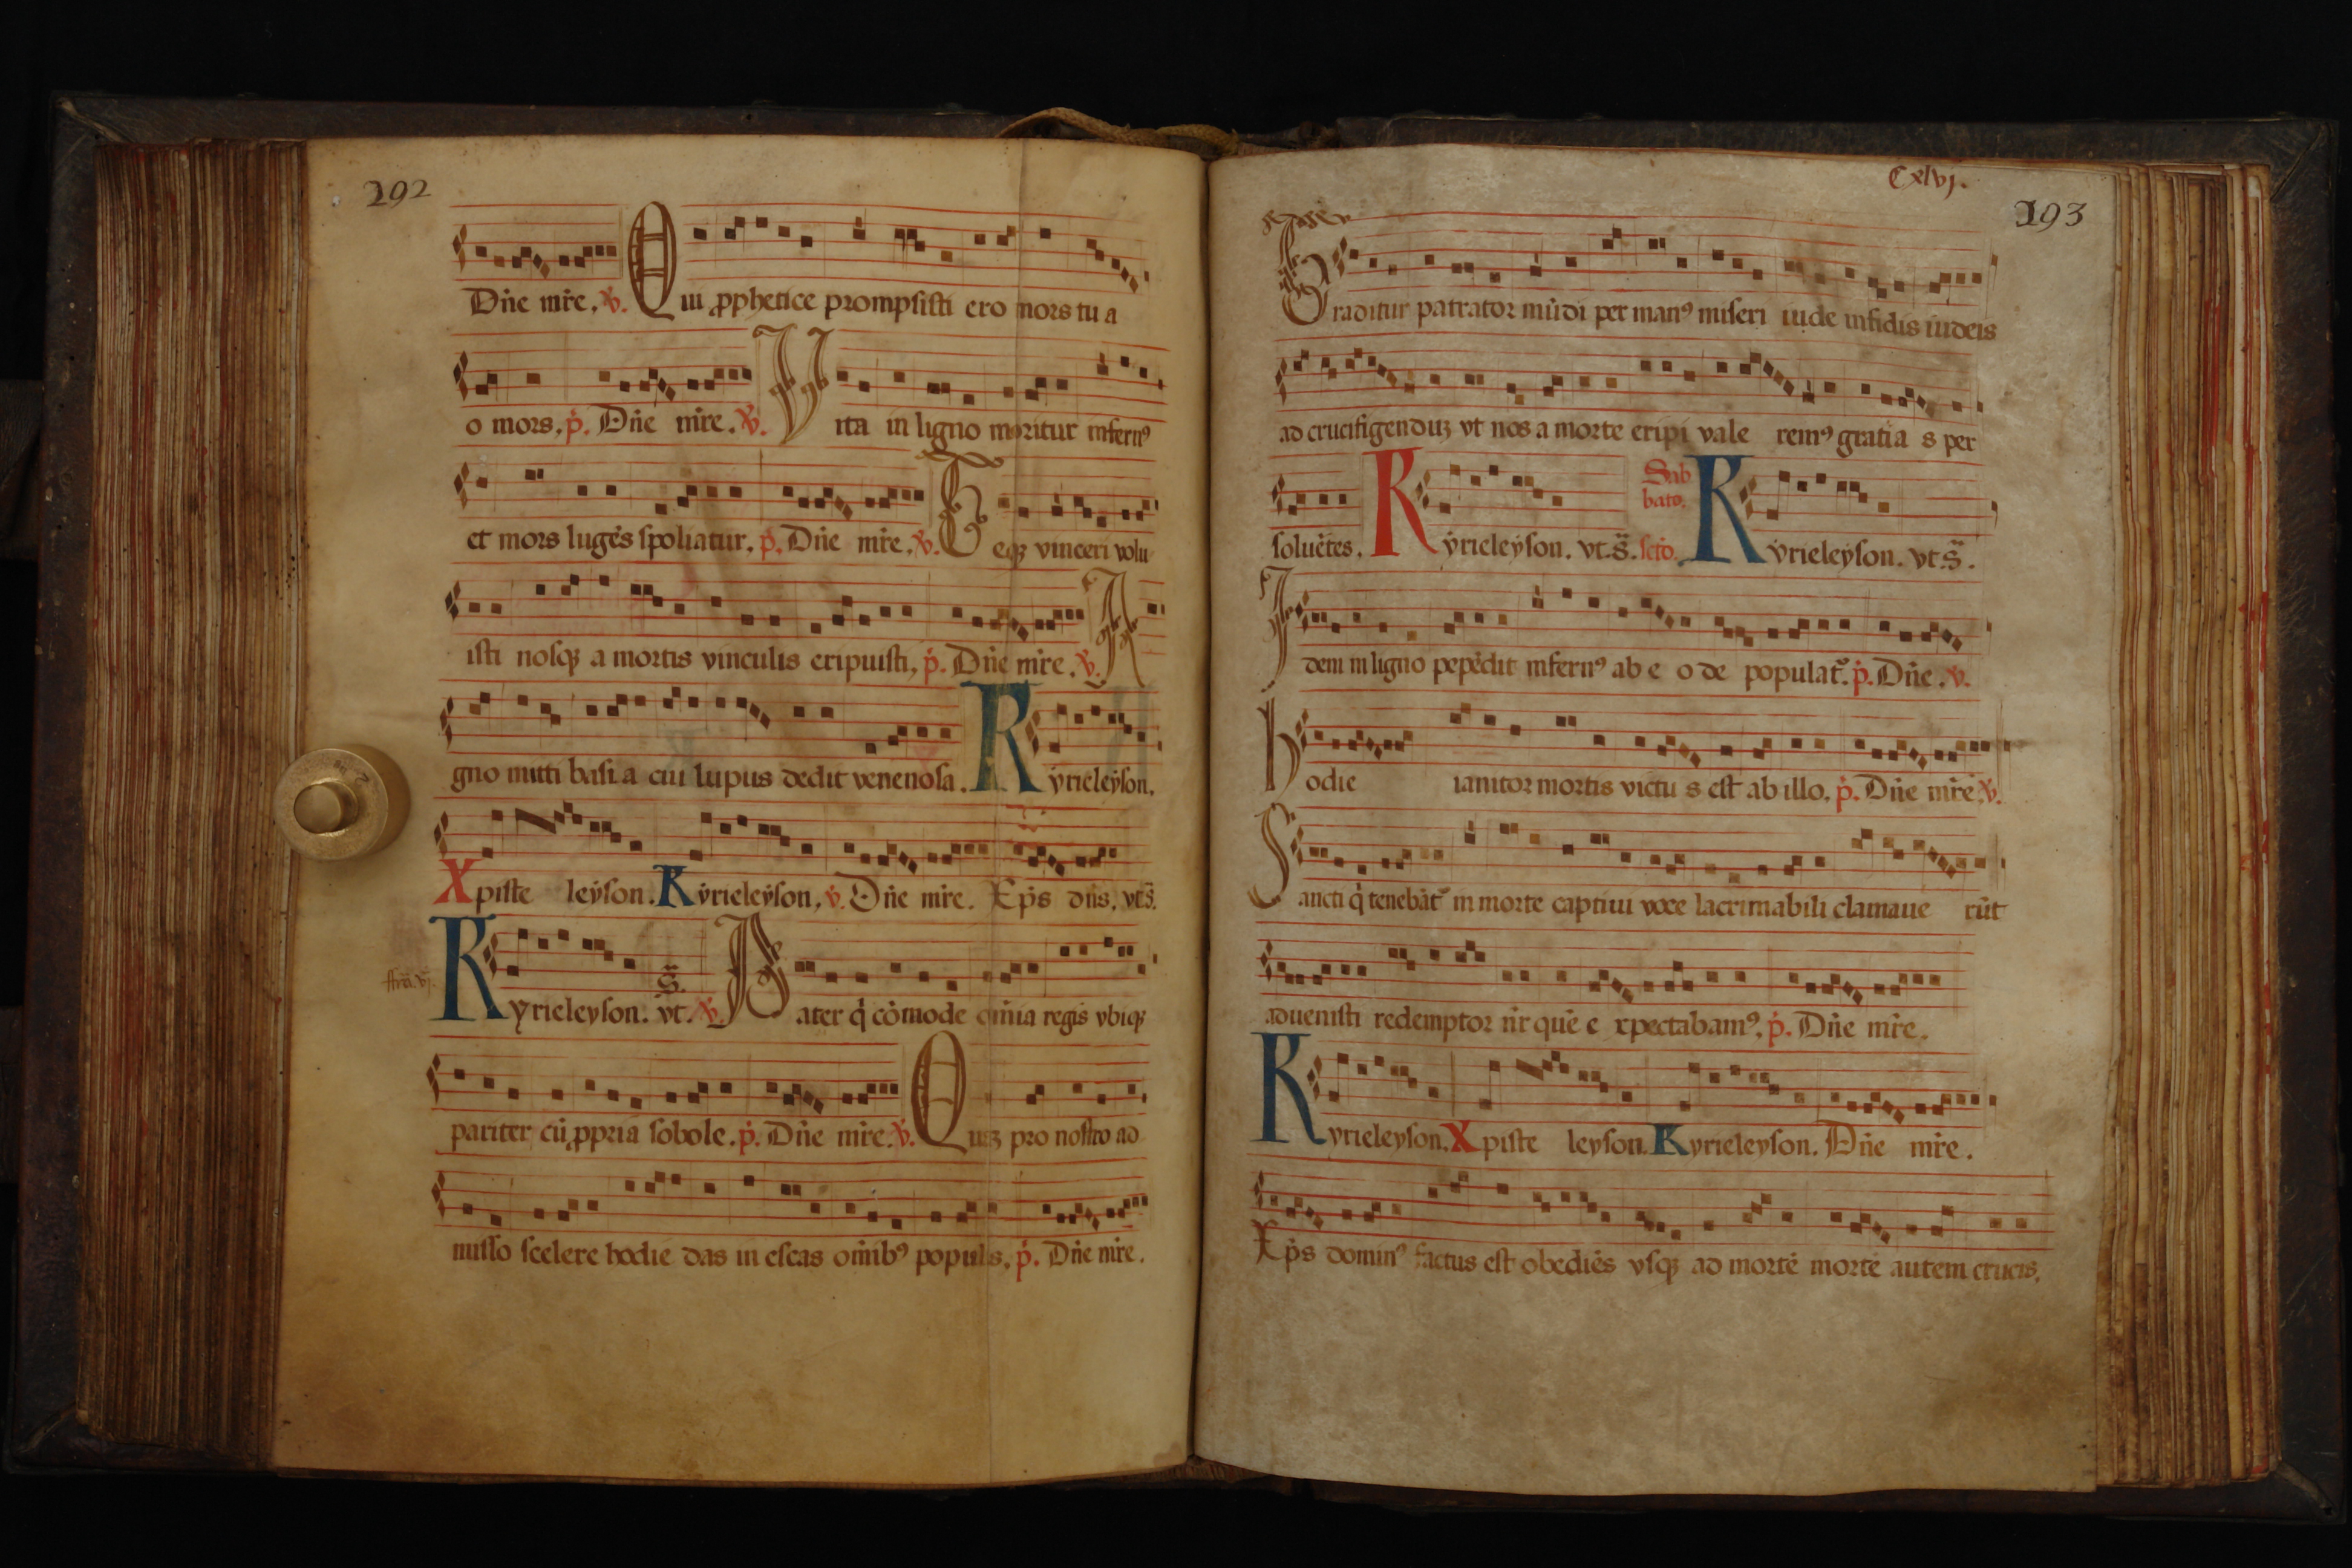 292
Dn̄e mr̄e. v̄. Qui ꝓphetice prompsisti ero mors tu a
o mors. p̄. Dn̄e mr̄e. v̄. Vita in ligno moritur infernꝰ
et mors lugēs spoliatur. p̄. Dn̄e mr̄e. v̄. Teqꝫ vinceri volu
isti nosqꝫ a mortis vinculis eripuisti, p̄. Dn̄e mr̄e. v̄. A
gno mitti basi a cui lupus dedit venenosa. Kyrieleyson.
Xpiste leyson. Kyrieleyson. v̄. Dn̄e mr̄e. Xp̄s dn̄s. vt s̄.
Kyrieleyson. vt. s̄. v̄. Pater q̄ cōmode om̄ia regis vbiqꝫ
pariter cū ꝓpria sobole. p̄. Dn̄e mr̄e. v̄. Quiꝫ pro nostro ad
misso scelere hodie das in escas om̄ibꝰ populis, p̄. Dn̄e mr̄e.
Cxlvj.
193
Traditur patrator mūdi per manꝰ miseri iude infidis iudeis
ad crucifigenduꝫ vt nos a morte eripi vale remꝰ gratia s per
soluētes. Kyrieleyson. vt. s̄. Sabbato. sctō. Kyrieleyson. vt. s̄.
Idem in ligno pepēdit infernꝰ ab e o de populat᷑. p̄. Dn̄e. v̄.
Hodie ianitor mortis victu s est ab illo. p̄. Dn̄e mr̄e. v̄.
Sancti q̄ tenebāt᷑ in morte captiui voce lacrimabili clamaue rūt
aduenisti redemptor nr̄ quē e xpectabamꝰ. p̄. Dn̄e mr̄e.
Kyrieleyson. Xpiste leyson. Kyrieleyson. Dn̄e mr̄e.
Xp̄s dominꝰ factus est obediēs vsqꝫ ad mortē mortē autem crucis.